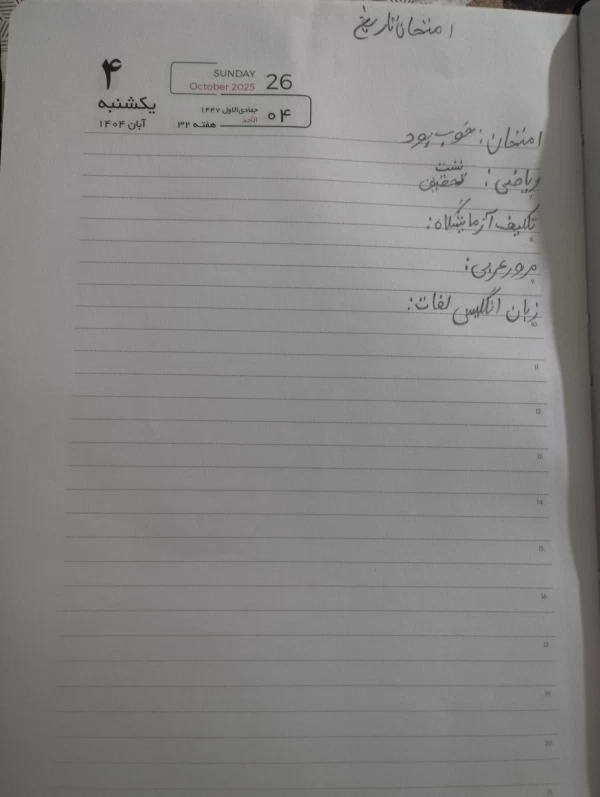 امتحان تاریخ
۴
یکشنبه
آبان ۱۴۰۴
SUNDAY 26
October 2025
جمادی‌الاول ۱۴۴۷ ۰۴
الأحد
هفته ۳۲
امتحان: خوب بود
ریاضی:
تکلیف آزمایشگاه:
مرور عربی:
زبان انگلیسی لغات:
10
11
12
13
14
15
16
17
19
20
21